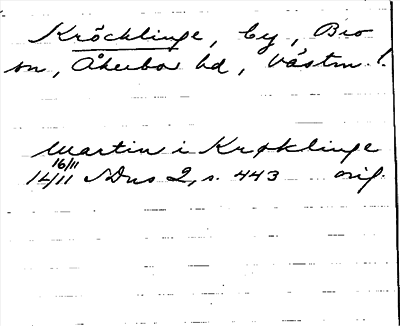 Kröcklinge, by, Bro
sn, Åkerbo hd, Västm l.
Martin i Krøklinge
16/11
14/11 SDns 2, s. 443 orig.